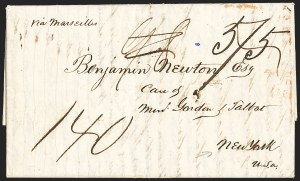 via Marseilles
5/5
Benjamin Newton Esq
Care of
Mess Gordon & Talbot
140
New York
U.S.a.